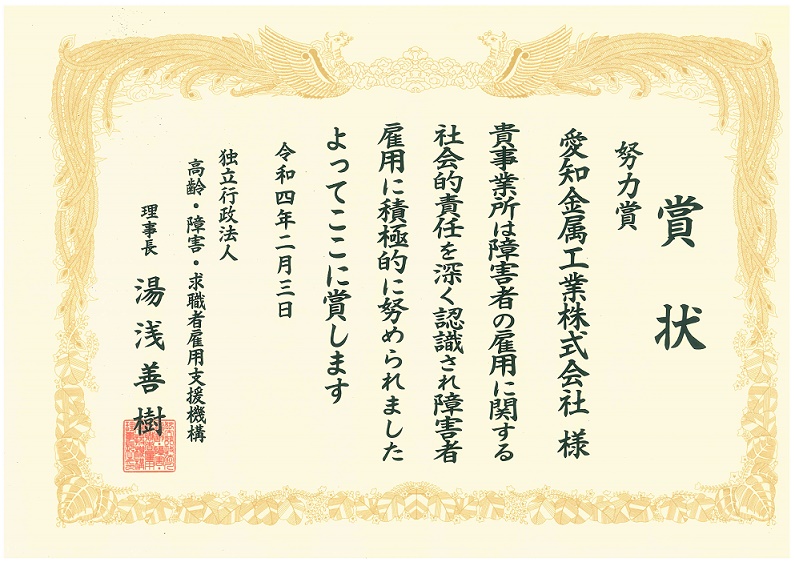 賞状
努力賞
愛知金属工業株式会社 様
貴事業所は障害者の雇用に関する
社会的責任を深く認識され障害者
雇用に積極的に努められました
よってここに賞します
令和四年二月三日
独立行政法人
高齢・障害・求職者雇用支援機構
理事長 湯浅善樹